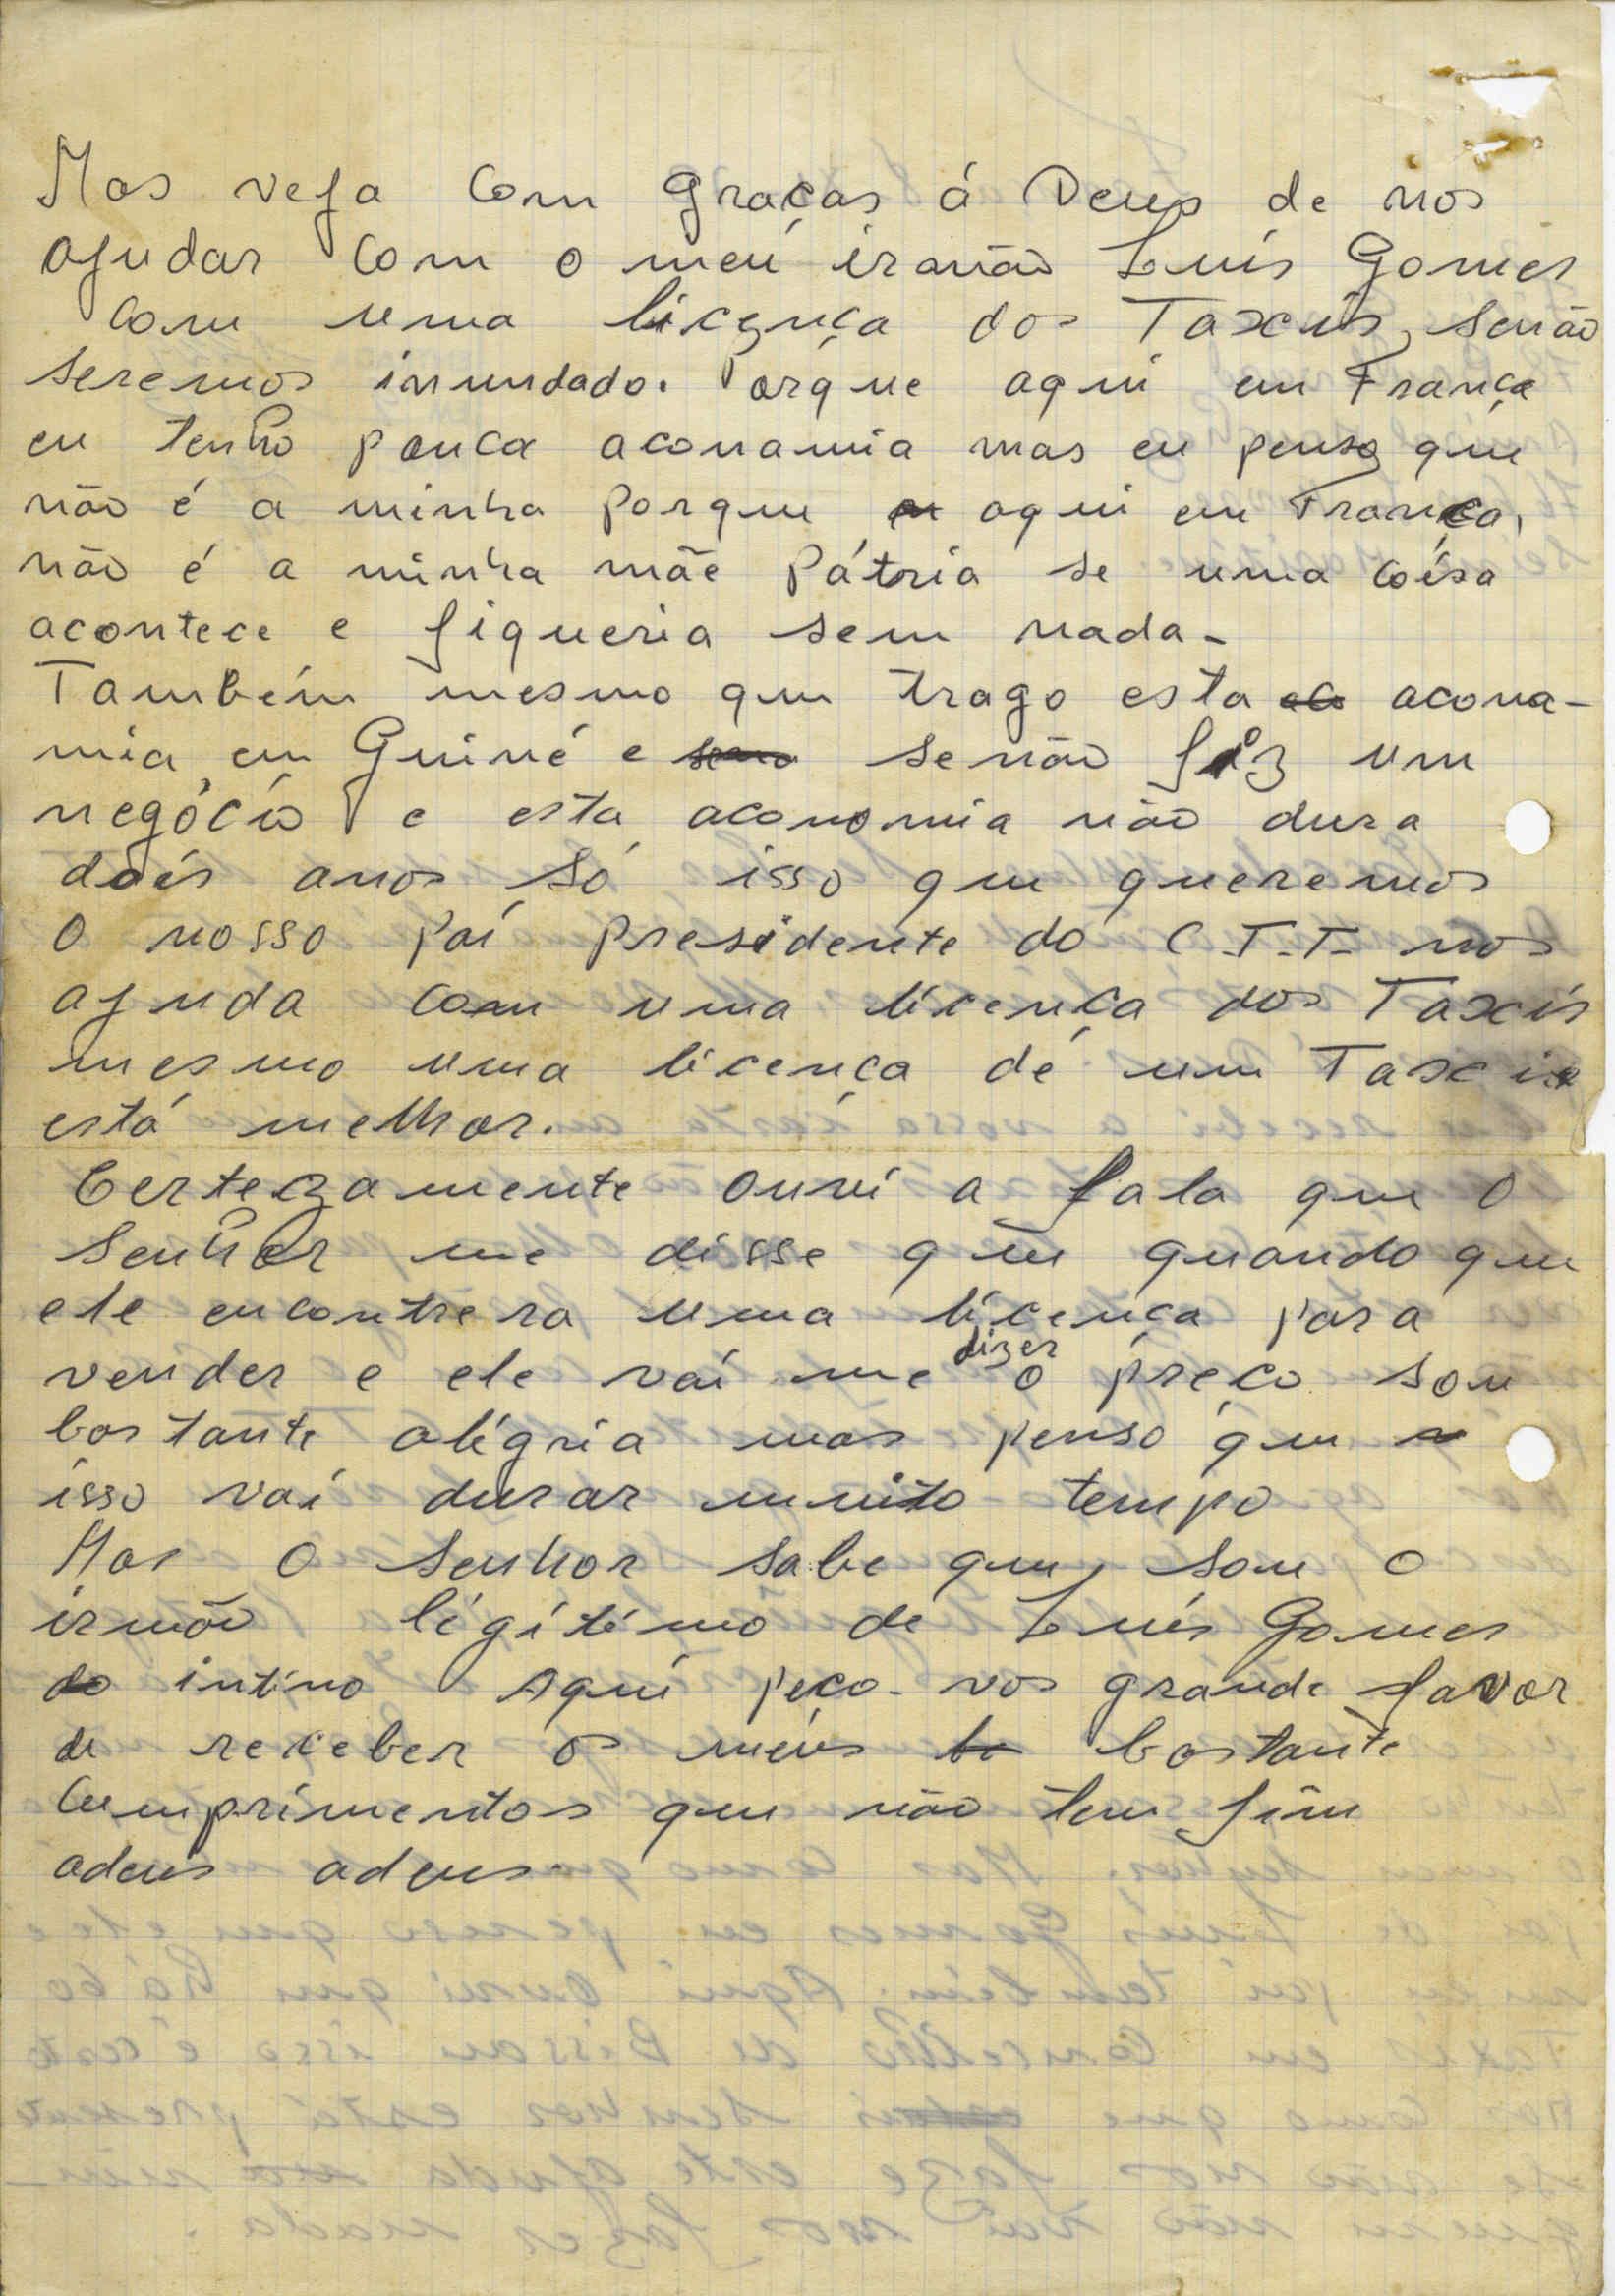 Mas veja com graças á Deus de nos
ajudar com o meu irmão Luís Gomes
com uma licença dos Taxcis, senão
seremos inundado. Porque aqui em França
eu tenho pouca aconamia mas eu penso que
não é a minha porque aqui em França,
não é a minha mãe Pátria se uma coisa
acontece e fiqueria sem nada-
Também mesmo que trago esta acona-
mia em Guiné e senão fiz um
negócio e esta aconomia não dura
dois anos só isso que queremos
O nosso pai presidente do C.T.T. nos
ajuda com uma licença dos Taxcis
mesmo uma licença de um Taxci
está melhor.
Certezamente ouvi a fala que o
senhor me disse que quando que
ele encontrera uma licença para
vender e ele vai me dizer o preço sou
bastante alégria mas penso que
isso vai durar muito tempo
Mas o senhor sabe que, sou o
irmão légitimo de Luís Gomes
intimo Aqui peço-vos grande favor
de receber os meus bastante
cumprimentos que não tem fim
adeus adeus.